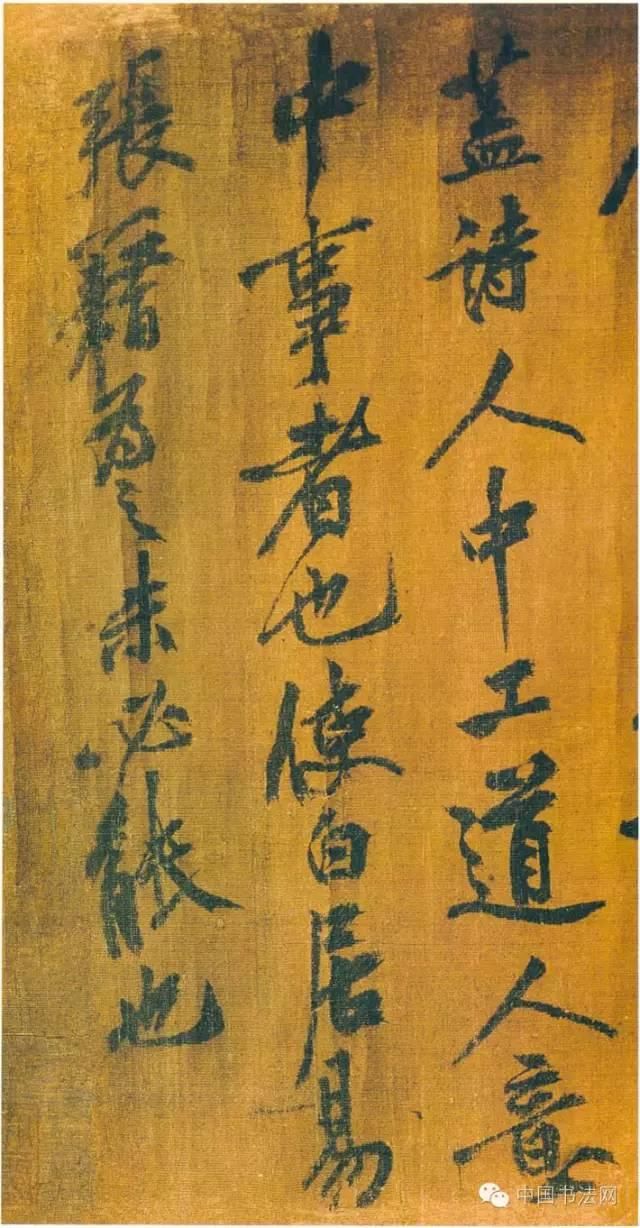 盖诗人中工道人意
中事者也使白居易
張籍為之未必能也
中国书法网